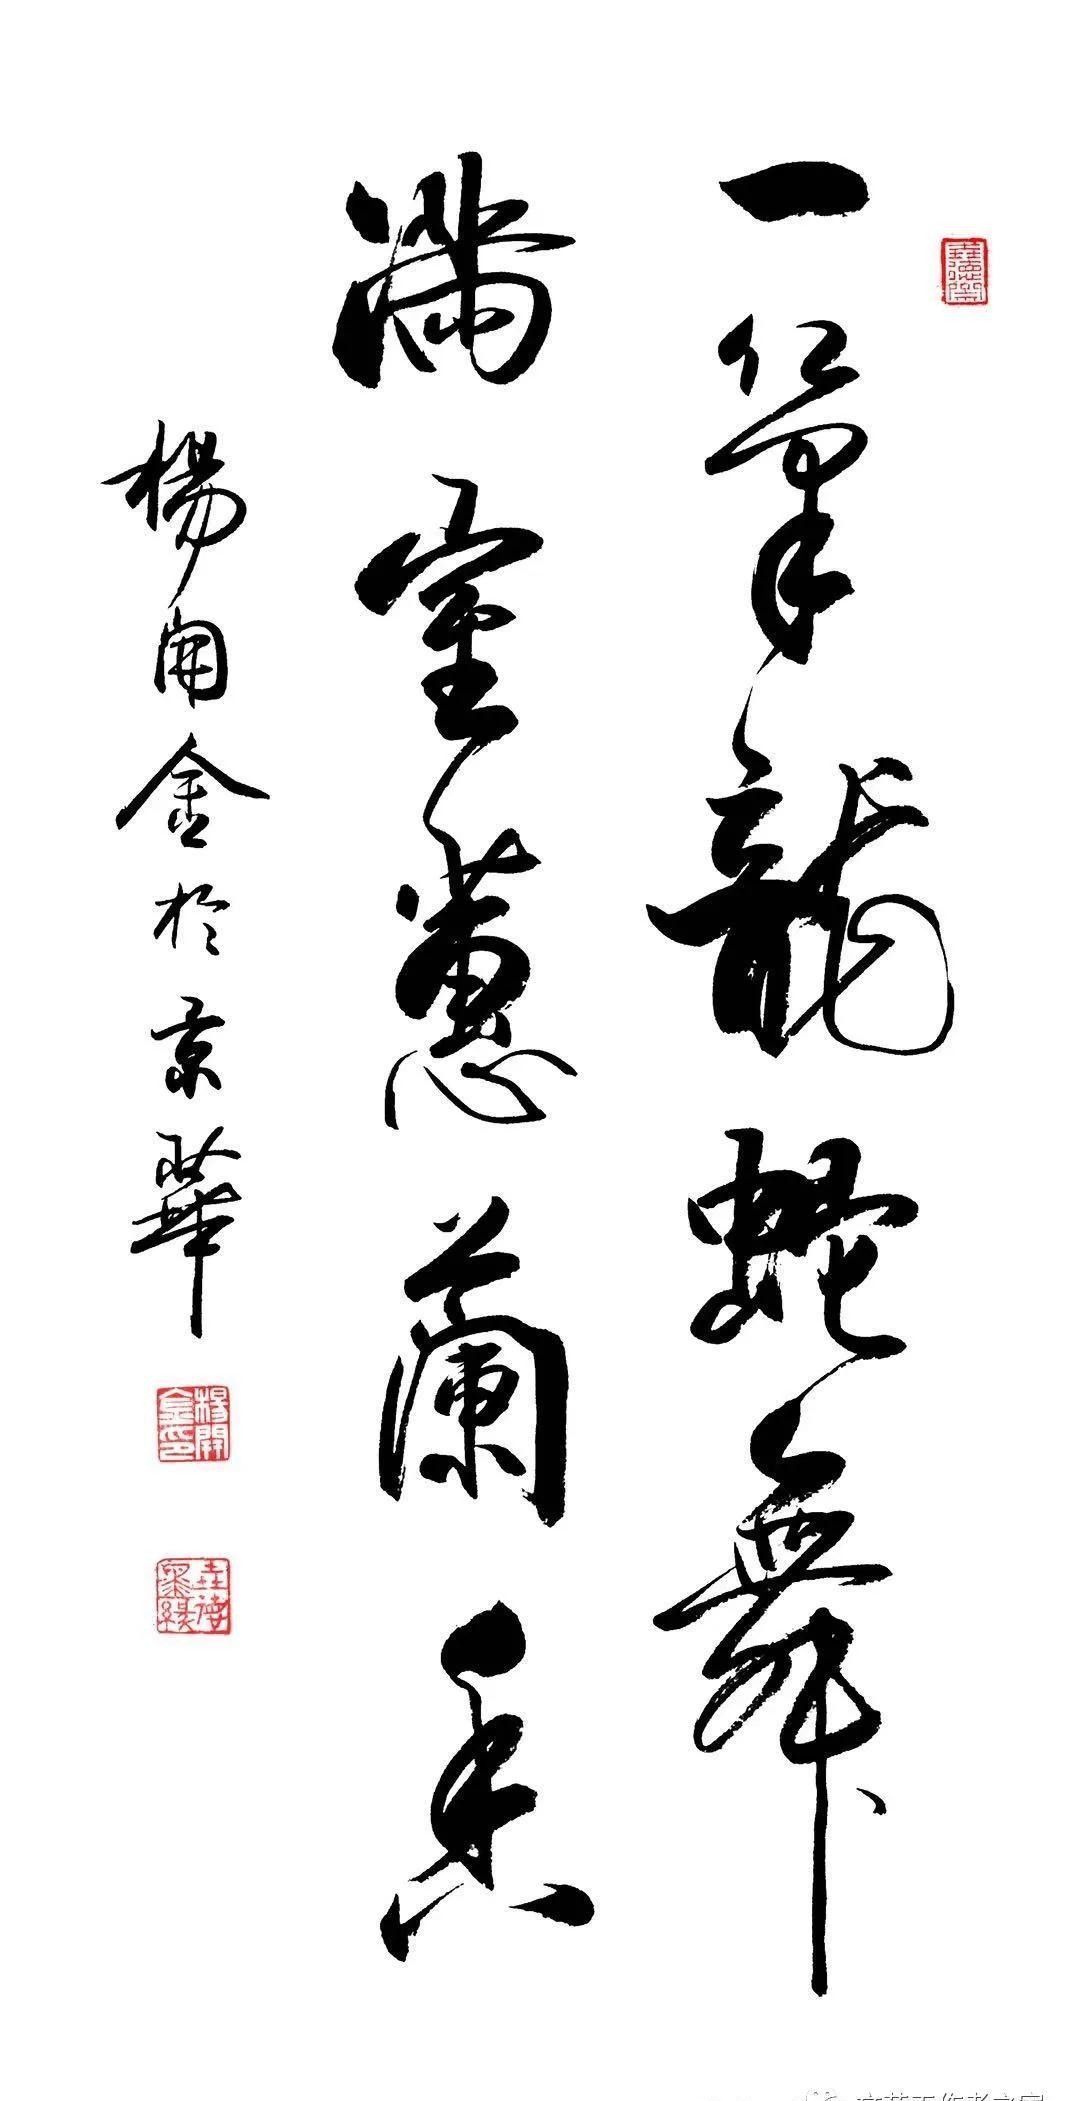 一筆龍蛇舞
滿室蕙蘭香
楊開金於京華
楊開金印